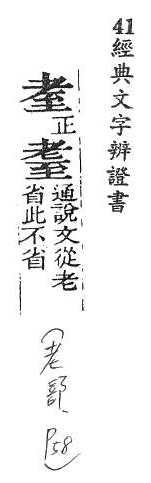 41 經典文字辨證書
耊正耋通說文從老
省此不省
(老部, P58)